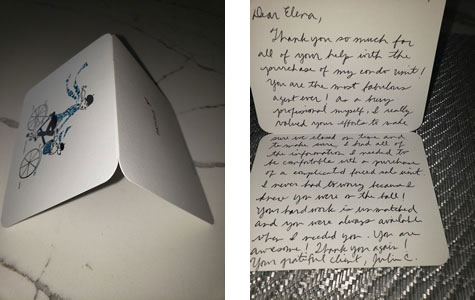 Dear Elena,
Thank you so much for
all of your help with the
purchase of my condo unit!
You are the most fabulous
agent ever! As a busy
professional myself, I really
valued your efforts to make
sure we closed on time and
to make sure I had all of
the information I needed to
be comfortable with a purchase
of a complicated friend sale unit.
I never had to worry because I
knew you were on the ball!
Your hard work is unmatched
and you were always available
when I needed you. You are
awesome! Thank you again!
Your grateful client, Julia C.